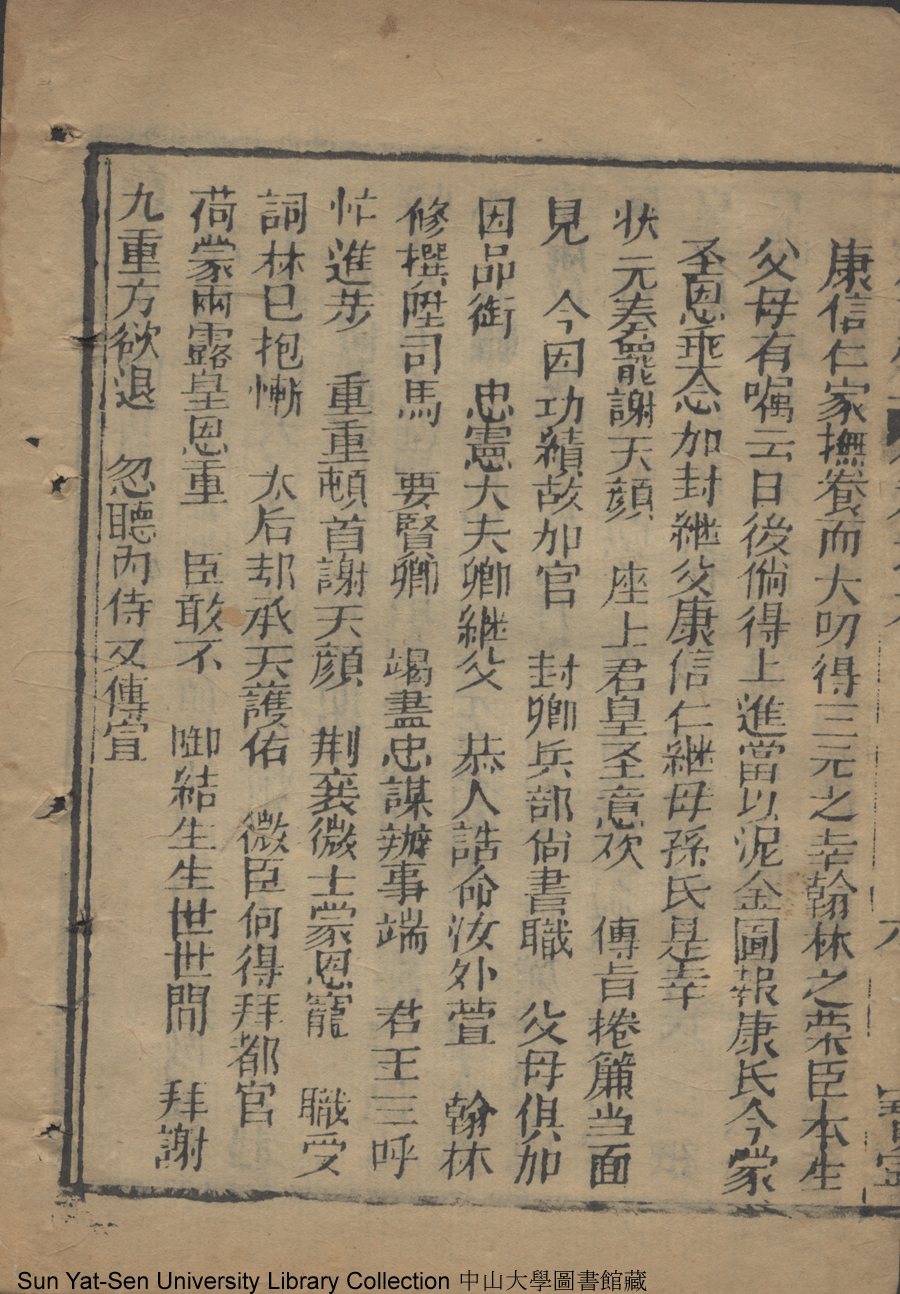 康信仁家撫養而大叨得三元之幸翰林之荣臣本生
父母有嘱云日後倘得上進當以泥金圖報康氏今蒙
圣恩乘念加封継父康信仁継母孫氏是幸
状元奏罷謝天顔　座上君皇圣意欢　傳旨捲簾当面
見　今因功績故加官　封卿兵部尚書職　父母俱加
因品銜　忠憲大夫卿継父　恭人誥命汝外萱　翰林
修撰陞司馬　要賢卿　竭盡忠謀辦事端　君王三呼
忙進步　重重頓首謝天顔　荆襄微士蒙恩寵　職受
詞林已抱慚　太后却承天護佑　微臣何得拜都官
荷蒙雨露皇恩重　臣敢不　啣結生生世世間　拜謝
九重方欲退　忽聽内侍又傳宣
Sun Yat-Sen University Library Collection 中山大學圖書館藏